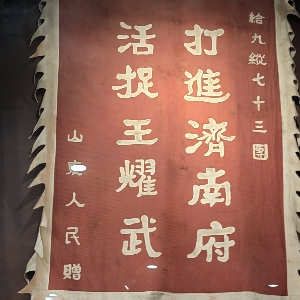 給九縱七十三團
打進濟南府
活捉王耀武
山東人民贈